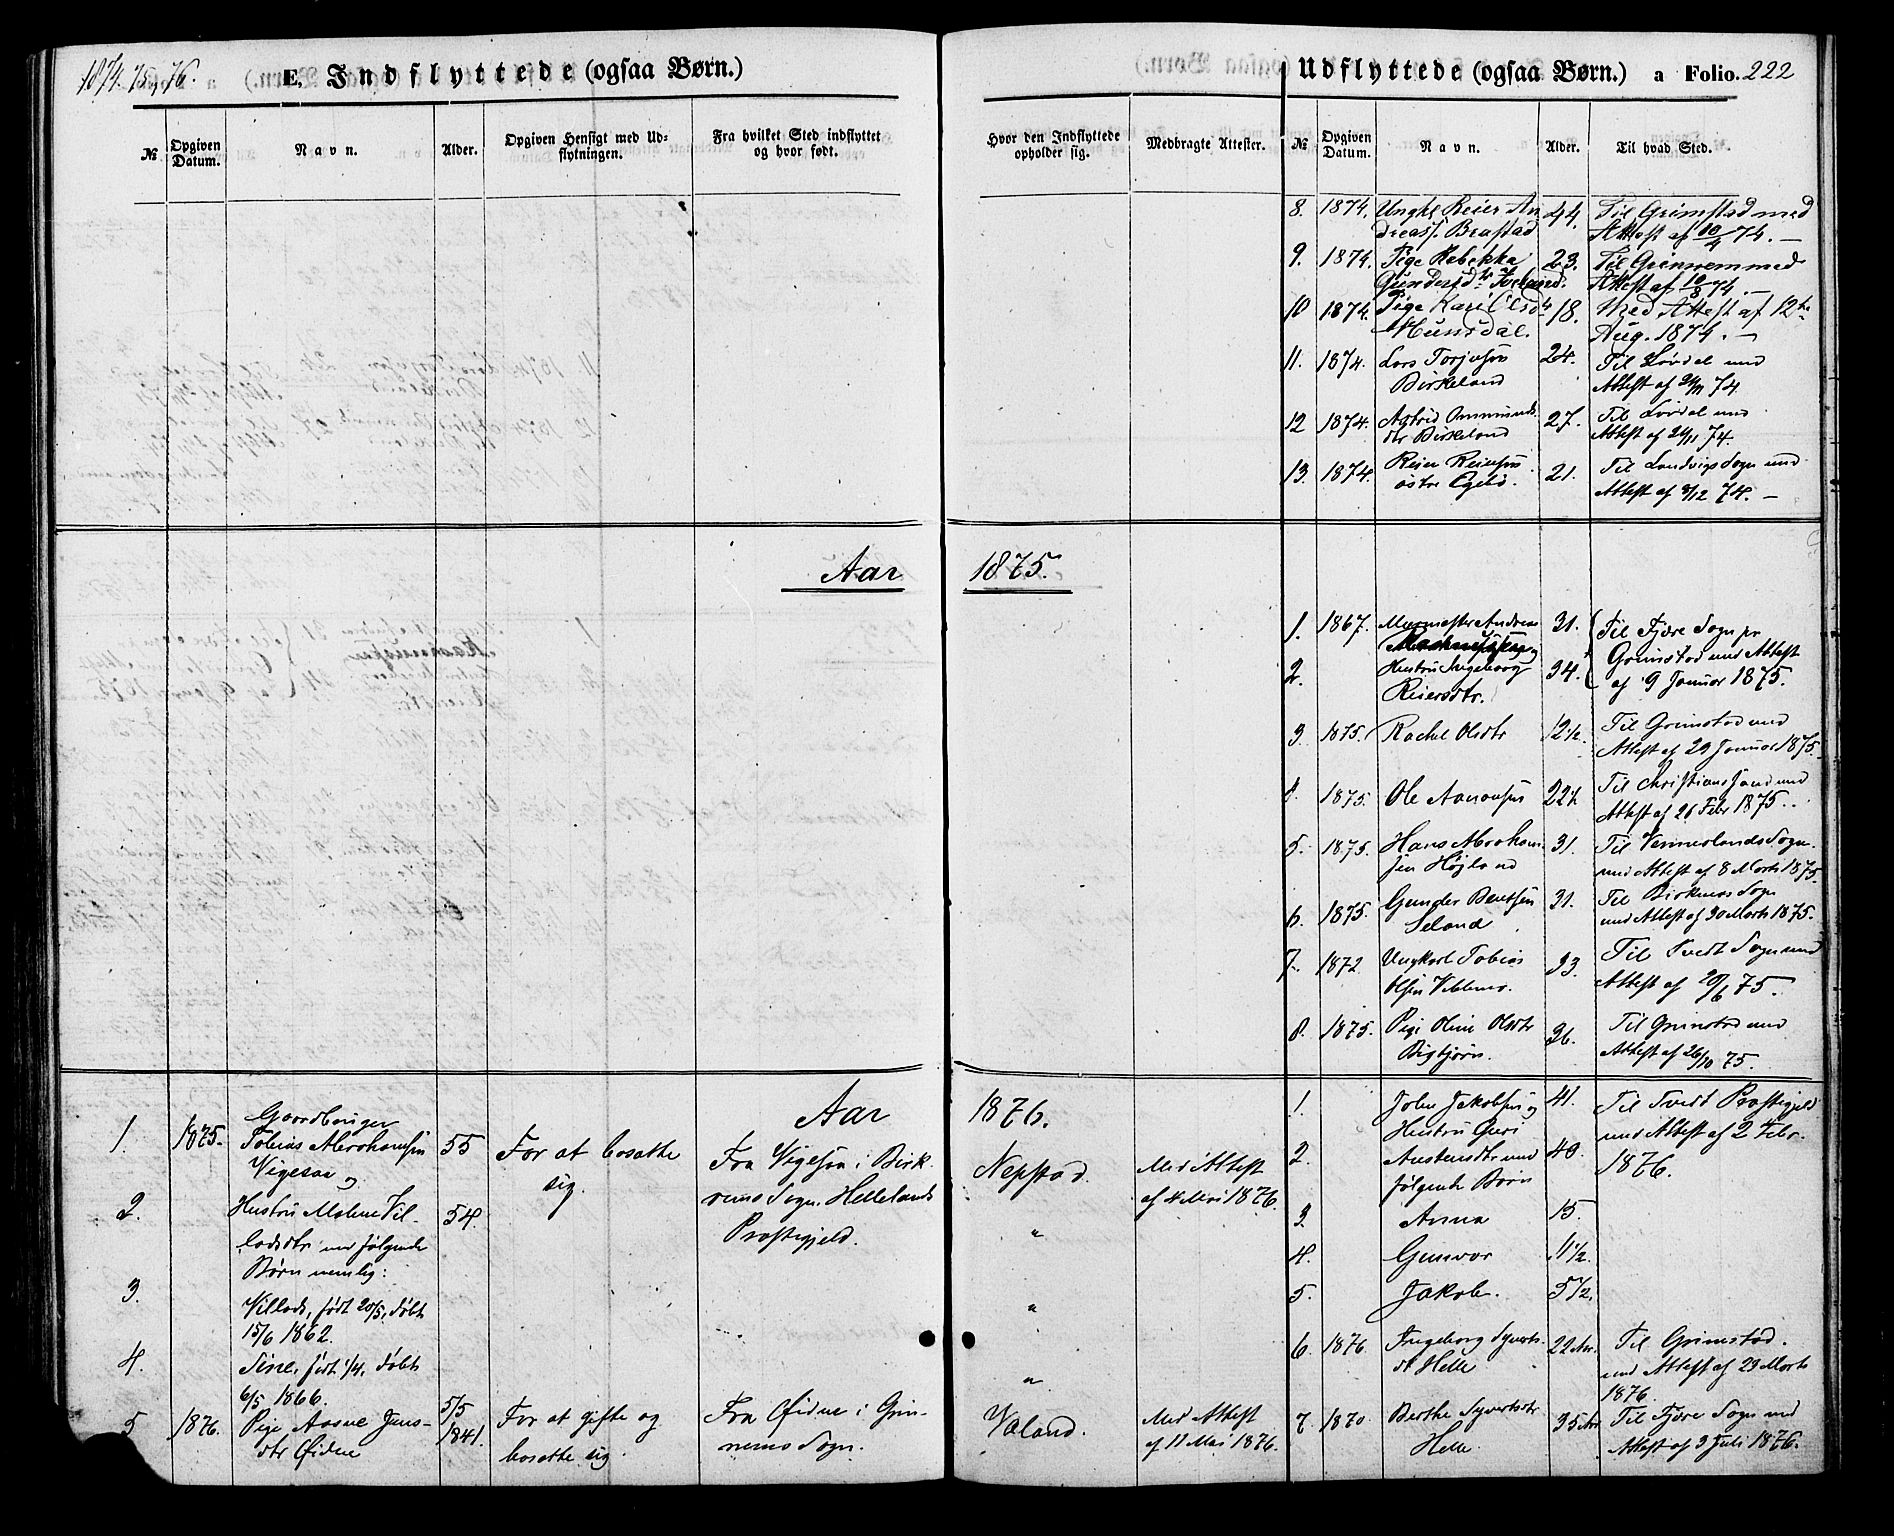 1874. 75, 76.
E. Indflyttede (ogsaa Børn.)
№
Opgiven Datum.
Navn.
Alder.
Opgiven Hensigt med Ud-
flytningen.
Fra hvilket Sted indflyttet
og hvor født.
Hvor den Indflyttede
opholder sig.
Medbragte Attester.
Udflyttede (ogsaa Børn.) a Folio. 222
№
Opgiven Datum.
Navn.
Alder.
Til hvad Sted.
8. 1874. Ungkl Reier An 44. Til Grimstad med
dreass. Brastad Attest af 10/4 74. —
9. 1874. Pige Rebekka 23. Til Grinnem med
Gundersd tr Attest af 10/8 74. —
10 1874. Pige Kari Olsd tr 18. Med Attest af 12te
Aug. 1874. —
11. 1874. Lars Torjusen 24. Til Løvdal med
Birkeland Attest af 74.
12 1874. Astrid Ommunds 27. Til Løvdal med
dtr Birkeland Attest af 74.
13. 1874. Reier Reiersen 21. Til Landvigs Sogn med
østre Egeli. Attest af 74. —
Aar 1875.
1. 1867. Murmester Andreas 31. Til Fjære Sogn pr
Grimstad med Attest
2. Hustru Ingeborg 34. af 9 Januar 1875.
Reiersdtr.
3 1875. Rachel Olsdtr 12½. Til Grimstad med
Attest af 29 Januar 1875.
4. 1875. Ole Aanonsen 22½ Til Christianssand med
Attest af 26 Febr 1875.
5. 1875. Hans Abraham 31. Til Vennerlands Sogn.
sen Højland med Attest af 8 Marts 1875.
6. 1875. Gunder Bentsen 31. Til Birkenes Sogn
Seland med Attest af 30 Marts 1875.
7. 1872 Ungkarl Tobias 33. Til Tvedt Sogn med
Olsen Attest af 20/6 75.
8. 1875. Pige Oline Olsdtr 26. Til Grimstad med
Bigtjørn. Attest af 26/10 75.
Aar 1876.
1. 1875. Gaardbruger
Tobias Abrahamsen 55 For at bosætte Fra Vigesaa i Birk- Nepstad. Med Attest
Vigesaa og sig. rems Sogn. Hellelands af 4 Mai 1876.
2. Hustru Malene Vil- 54. Præstegjeld. "
ladsdtr med følgende
Børn nemlig:
3. Villads, født 20/5, døbt "
15/6 1862.
4. Sine, født 1/4, døbt "
6/5 1866.
5 1876. Pige Aasne Jens- 5/5 For at gifte og Fra Øidne i Grin- Væland. Med Attest
dtr Øidne 1841. bosætte sig. nems Sogn. af 11 Mai 1876.
1. John Jakobsen og 41. Til Tvedt Præstegjeld
Hustru Guri med Attest af 2 Febr.
2. Austensdtr med 40. 1876.
følgende Børn
3. Anna 15.
4. Gunvor 11½.
5. Jakob. 5½.
6. 1876. Ingeborg Syverts- 22 Aar. Til Grimstad.
dtr Helle med Attest af 29 Marts
1876.
7. 1870. Berthe Syvertsdtr 35 Aar Til Fjære Sogn med
Helle. Attest af 3 Juli 1876.